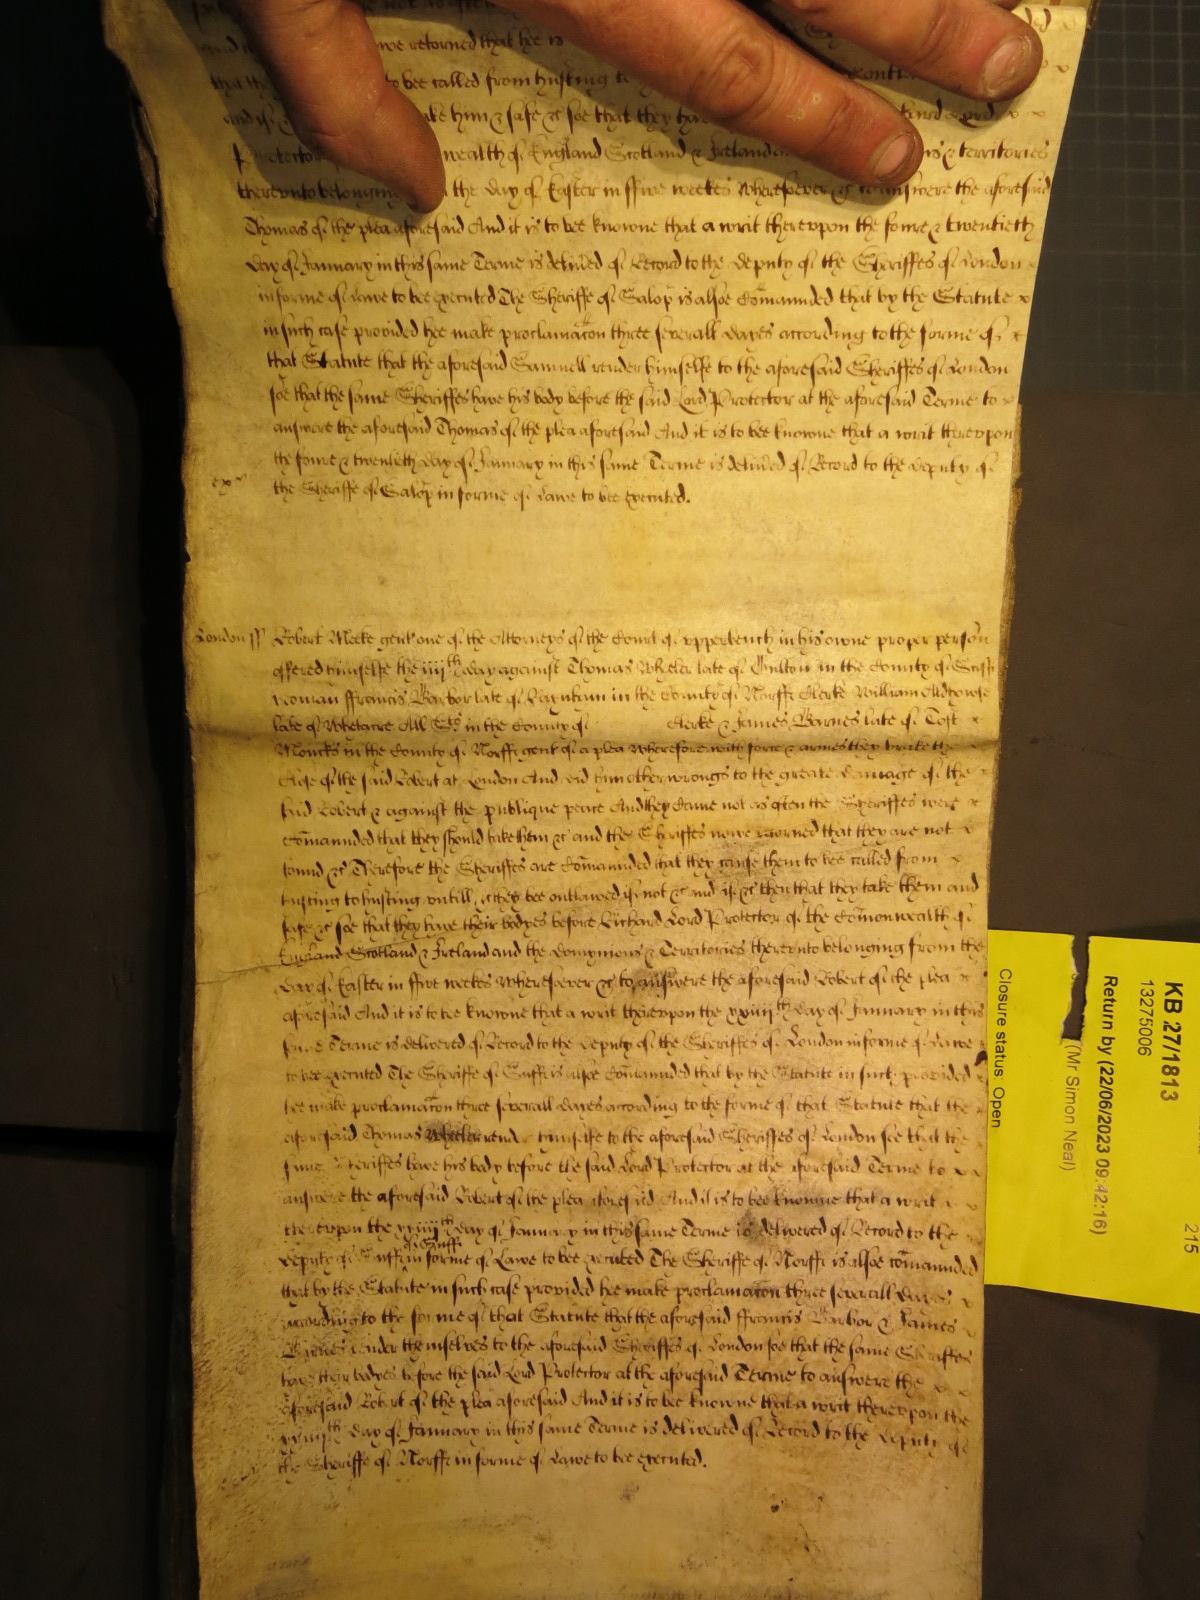 we returned that hee is
to bee called from husting to
take him & safe &c soe that they have
Protector wealth of England Scotland & Ireland & territories
thereunto belonging the day of Easter in ffive weekes wheresoever &c to answere the aforesaid
Thomas of the plea aforesaid And it is to bee knowne that a writ thereupon the foure & twentieth
day of January in this same Terme is deliv̄ed of Record to the deputy of the Sheriffes of London
in forme of Lawe to bee executed The Sheriffe of Salop is alsoe Com̄aunded that by the Statute x
in such case provided hee make proclamac̄on three severall dayes according to the forme of x
that Statute that the aforesaid Samuell render himselfe to the aforesaid Sheriffes of London
soe that the same Sheriffes have his body before the said Lord Protector at the aforesaid Terme to
answere the aforesaid Thomas of the plea aforesaid And it is to bee knowne that a writ thereupon
the foure & twentieth day of January in this same Terme is deliv̄ed of Record to the deputy of
the Sheriffe of Salop in forme of Lawe to bee executed.
London ss Robert Meeke gent one of the Attorneys of the Court of upper bench in his owne proper person
offered himselfe the iiiith day against Thomas Wheler late of in the County of Suff
yeoman ffrancis Barbor late of in the County of Norff Clerke William
late of Whetacre All Sts in the County of Clerke & James Barnes late of Toft x
Moncks in the County of Norff gent of a plea wherefore with force & armes they brake the
Close of the said Robert at London And did him other wrongs to the great damage of the
said Robert & against the publique peace And they came not as often the Sheriffes were x
Com̄aunded that they should take them &c and the Sheriffes nowe returned that they are not x
found &c Therefore the Sheriffes are Com̄aunded that they cause them to bee called from x
husting to husting untill &c they bee outlawed if not &c and if &c then that they take them and
safe &c soe that they have their bodyes before Richard Lord Protector of the Com̄onwealth of
England Scotland & Ireland and the dominyons & Territories thereunto belonging from the
day of Easter in ffive weekes wheresoever &c to answere the aforesaid Robert of the plea x
aforesaid And it is to bee knowne that a writ thereupon the xxiiiith day of January in this
same Terme is delivered of Record to the deputy of the Sheriffes of London in forme of Lawe
to bee executed The Sheriffe of Suff is alsoe Com̄aunded that by the Statute in such provided
hee make proclamac̄on three severall dayes according to the forme of that Statute that the
aforesaid Thomas Wheler render himselfe to the aforesaid Sheriffes of London soe that the
same Sheriffes have his body before the said Lord Protector at the aforesaid Terme to x x
answere the aforesaid Robert of the plea aforesaid And it is to bee knowne that a writ x x
thereupon the xxiiiith day of January in this same Terme is delivered of Record to the
deputy of of Suff in forme of Lawe to bee executed The Sheriffe of Norff is alsoe com̄aunded
that by the Statute in such case provided hee make proclamac̄on three severall dayes x
according to the forme of that Statute that the aforesaid ffrancis Barbor & James
Barnes render themselves to the aforesaid Sheriffes of London soe that the same Sheriffes
have their bodyes before the said Lord Protector at the aforesaid Terme to answere the x x
aforesaid Robert of the plea aforesaid And it is to bee knowne that a writ thereupon the
xxiiiith day of January in this same Terme is delivered of Record to the deputy of
the Sheriffe of Norff in forme of Lawe to bee executed.
KB 27/1813
13275006
Return by (22/06/2023 09:42:16)
(Mr Simon Neal)
Closure status: Open
215